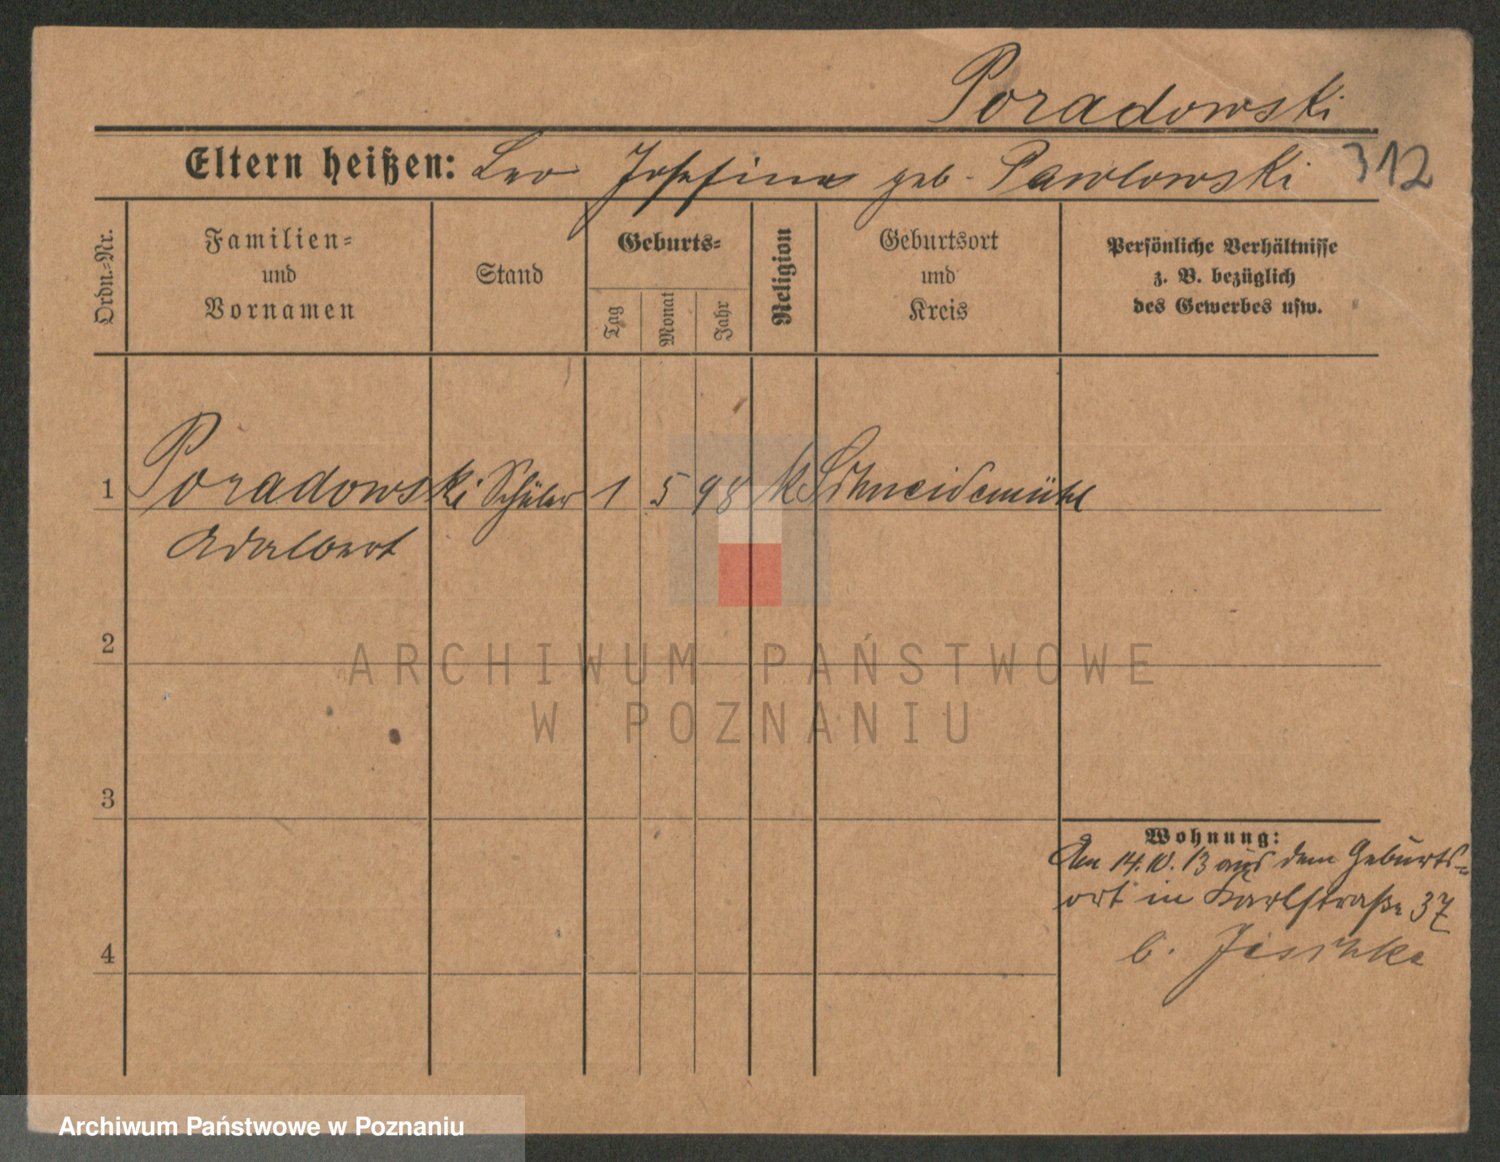 Poradowski
Eltern heißen: Leo Josefina geb. Pawlowski 312
Ordn.=Nr.
Familien=
und
Vornamen
Stand
Geburts=
Tag
Monat
Jahr
Religion
Geburtsort
und
Kreis
Persönliche Verhältnisse
z. B. bezüglich
des Gewerbes usw.
1 Poradowski Schüler 1 5 98 k Schneidemühl
Adalbert
2
ARCHIWUM PAŃSTWOWE
W POZNANIU
3
Wohnung:
Am 14.10.13 aus dem Geburts=
ort in Karlstraße 37
b.
4
Archiwum Państwowe w Poznaniu